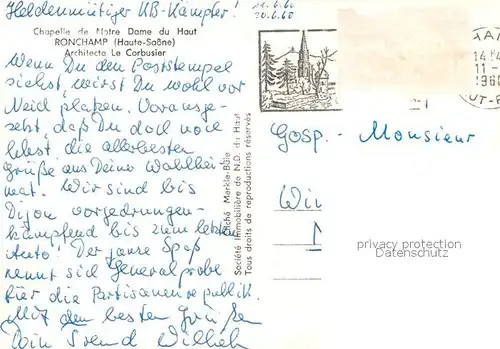 Heldenmütiger KB-Kämpfer!
Chapelle de Notre Dame du Haut
RONCHAMP (Haute-Saône)
Architecte Le Corbusier
Wenn Du den Poststempel
siehst, wirst Du wohl vor
Neid platzen. Vorausge-
setzt, daß Du doch noch
lebst die allerbesten
Grüße aus Deiner Wahlhei-
mat. Wir sind bis
Dijon vorgedrungen-
kämpfend bis zum letzten
Auto! Der ganze Spaß
nennt sich Generalprobe
für die Partisanenrepublik.
Mit den besten Grüßen
Dein Freund Wilhelm
Cliché Merkle-Bâle
Société Immobilière de N.D. du Haut
Tous droits de reproductions réservés
20.6.60
Gosp. - Monsieur
Wi
privacy protection
Datenschutz